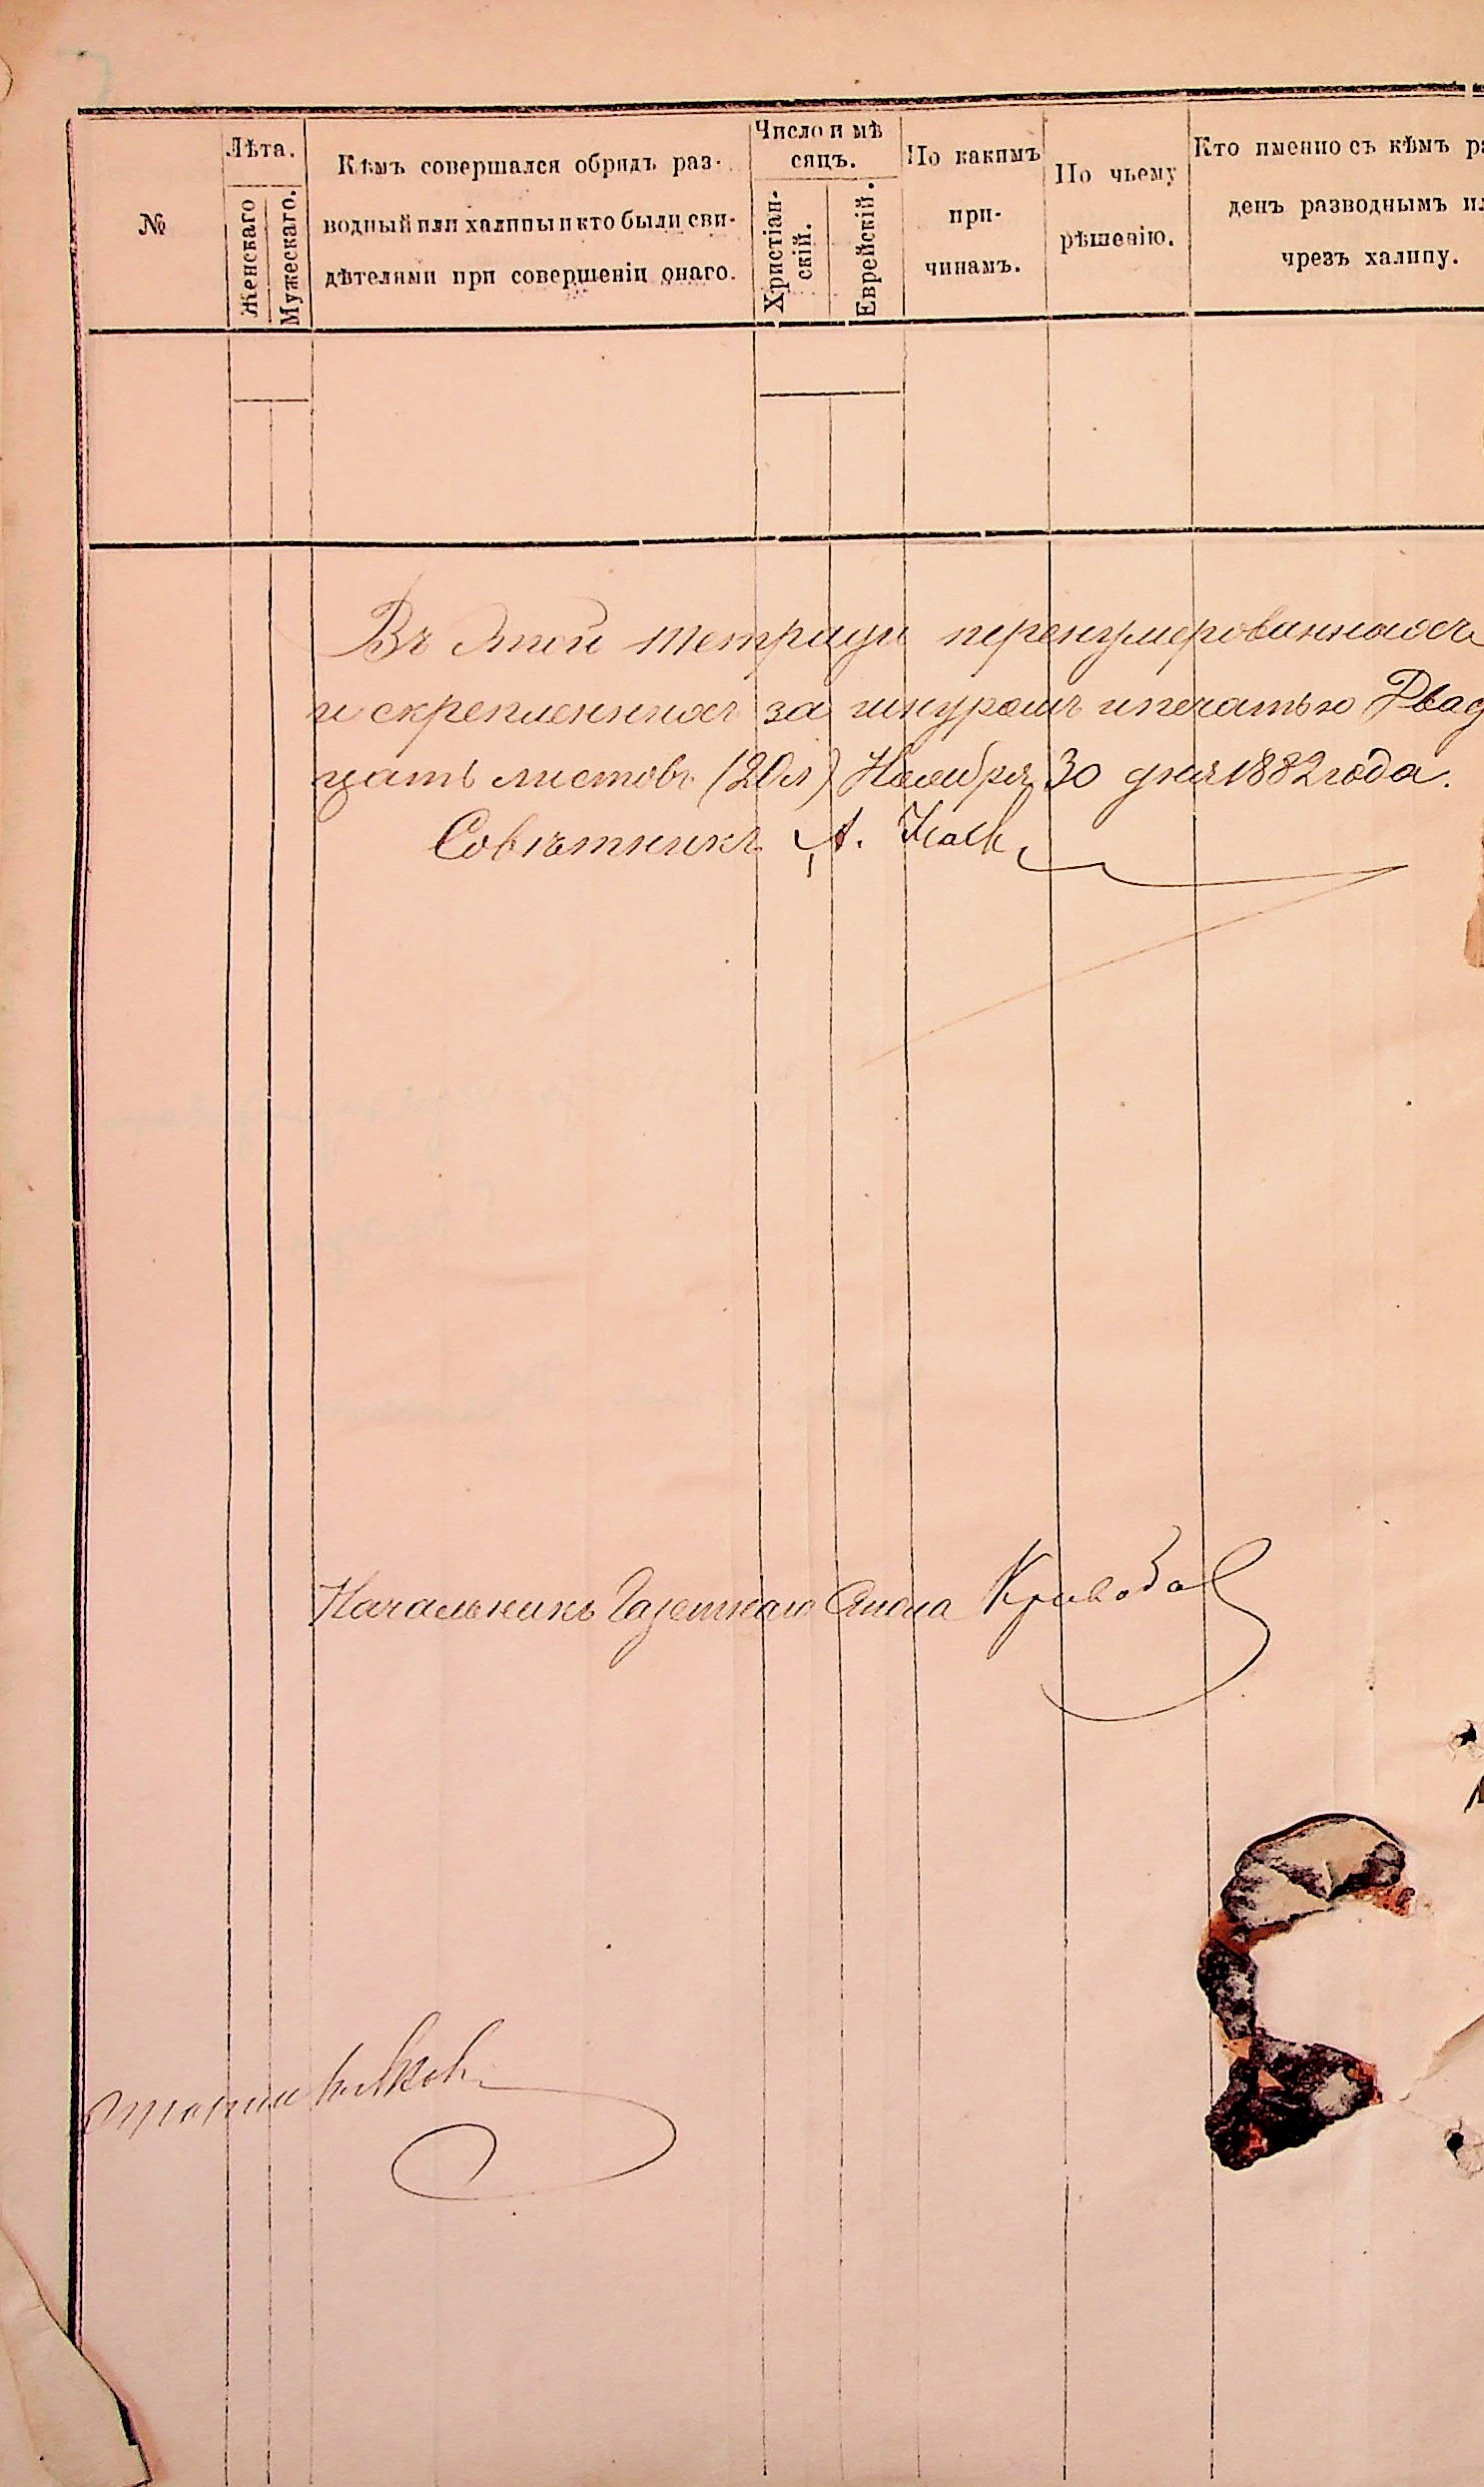 №
Лѣта.
Женскаго
Мужескаго.
Кѣмъ совершался обрядъ раз-
водный или халицы и кто были сви-
дѣтелями при совершеніи онаго.
Число и мѣ
сяцъ.
Христіан-
скій.
Еврейскій.
По какимъ
при-
чинамъ.
По чьему
рѣшенію.
Кто именно съ кѣмъ ра
денъ разводнымъ ил
чрезъ халицу.
Въ этой тетради перенумерованныхъ
и скрепленныхъ за шнуромъ и печатью Двад
цать листовъ (20 л) Ноября 30 дня 1882 года.
Совѣтникъ А.
Начальникъ Газетнаго Стола